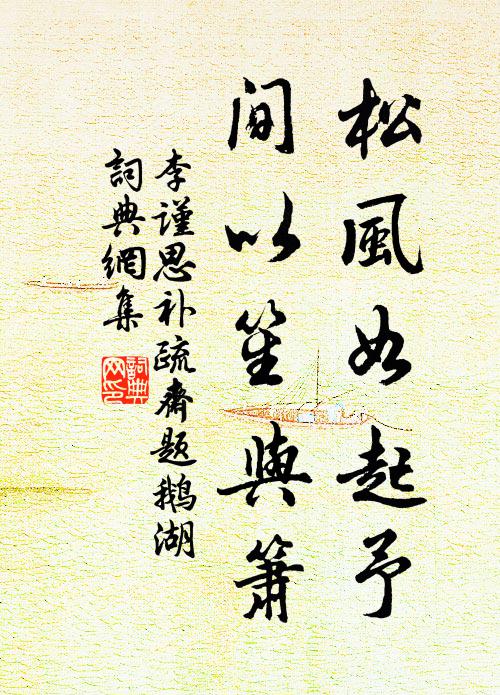 松風如起予
間以笙與簫
李谨思补疏齋题鹅湖
詞典網集
詞典網印